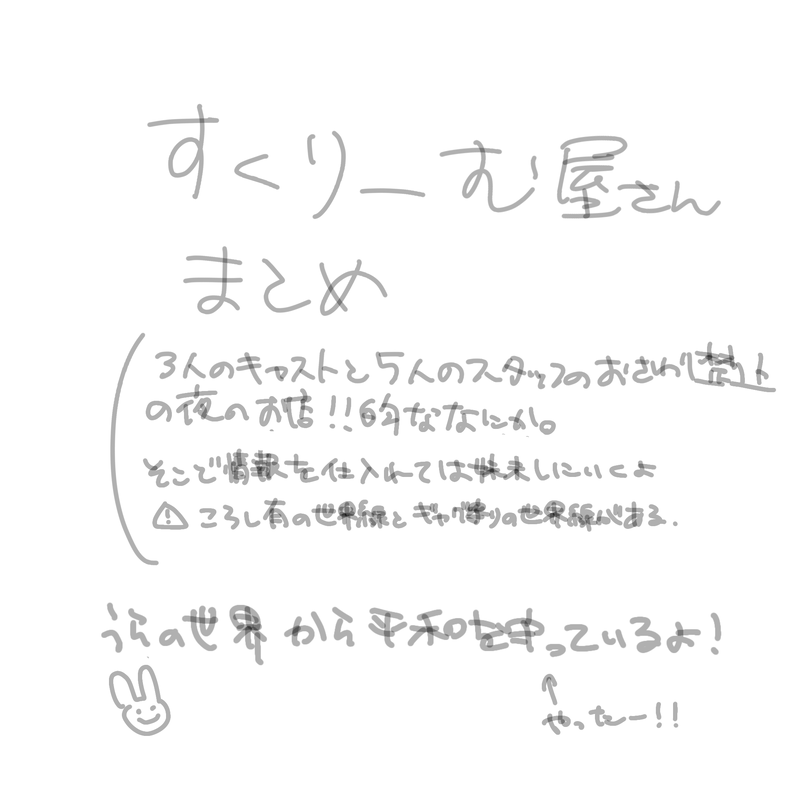 すくりーむ屋さん
まとめ
3人のキャストと5人のスタッフのおさわり禁止
の夜のお店!!的ななにか。
そこで情報を仕入れては始末しにいくよ
⚠ころし有の世界線とギャグ寄りの世界線がある.
うらの世界から平和を守っているよ!
↑
やったー!!